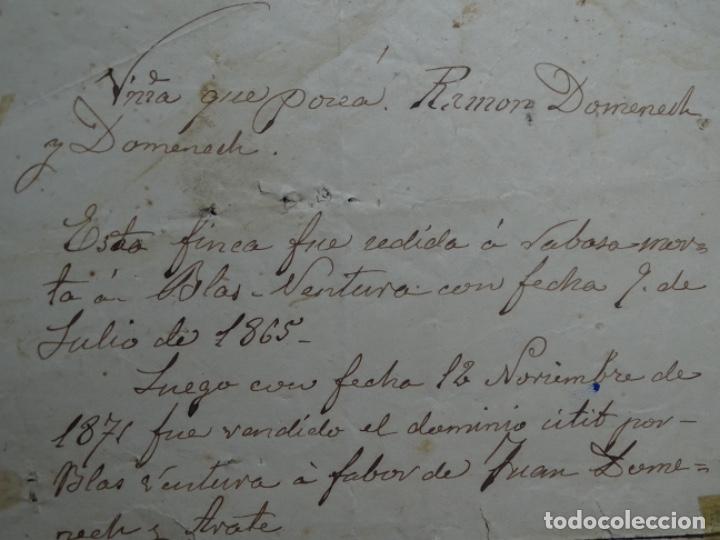 Viña que poseá. Ramon Domenech
y Domenech.
Esta finca fue cedida á rabasa-mor-
ta á Blas Ventura con fecha 9. de
Julio de 1865-
Luego con fecha 12 Noviembre de
1871 fue vendido el dominio util por-
Blas Ventura á fabor de Juan Dome=
nech y
todocoleccion
todocoleccion.net